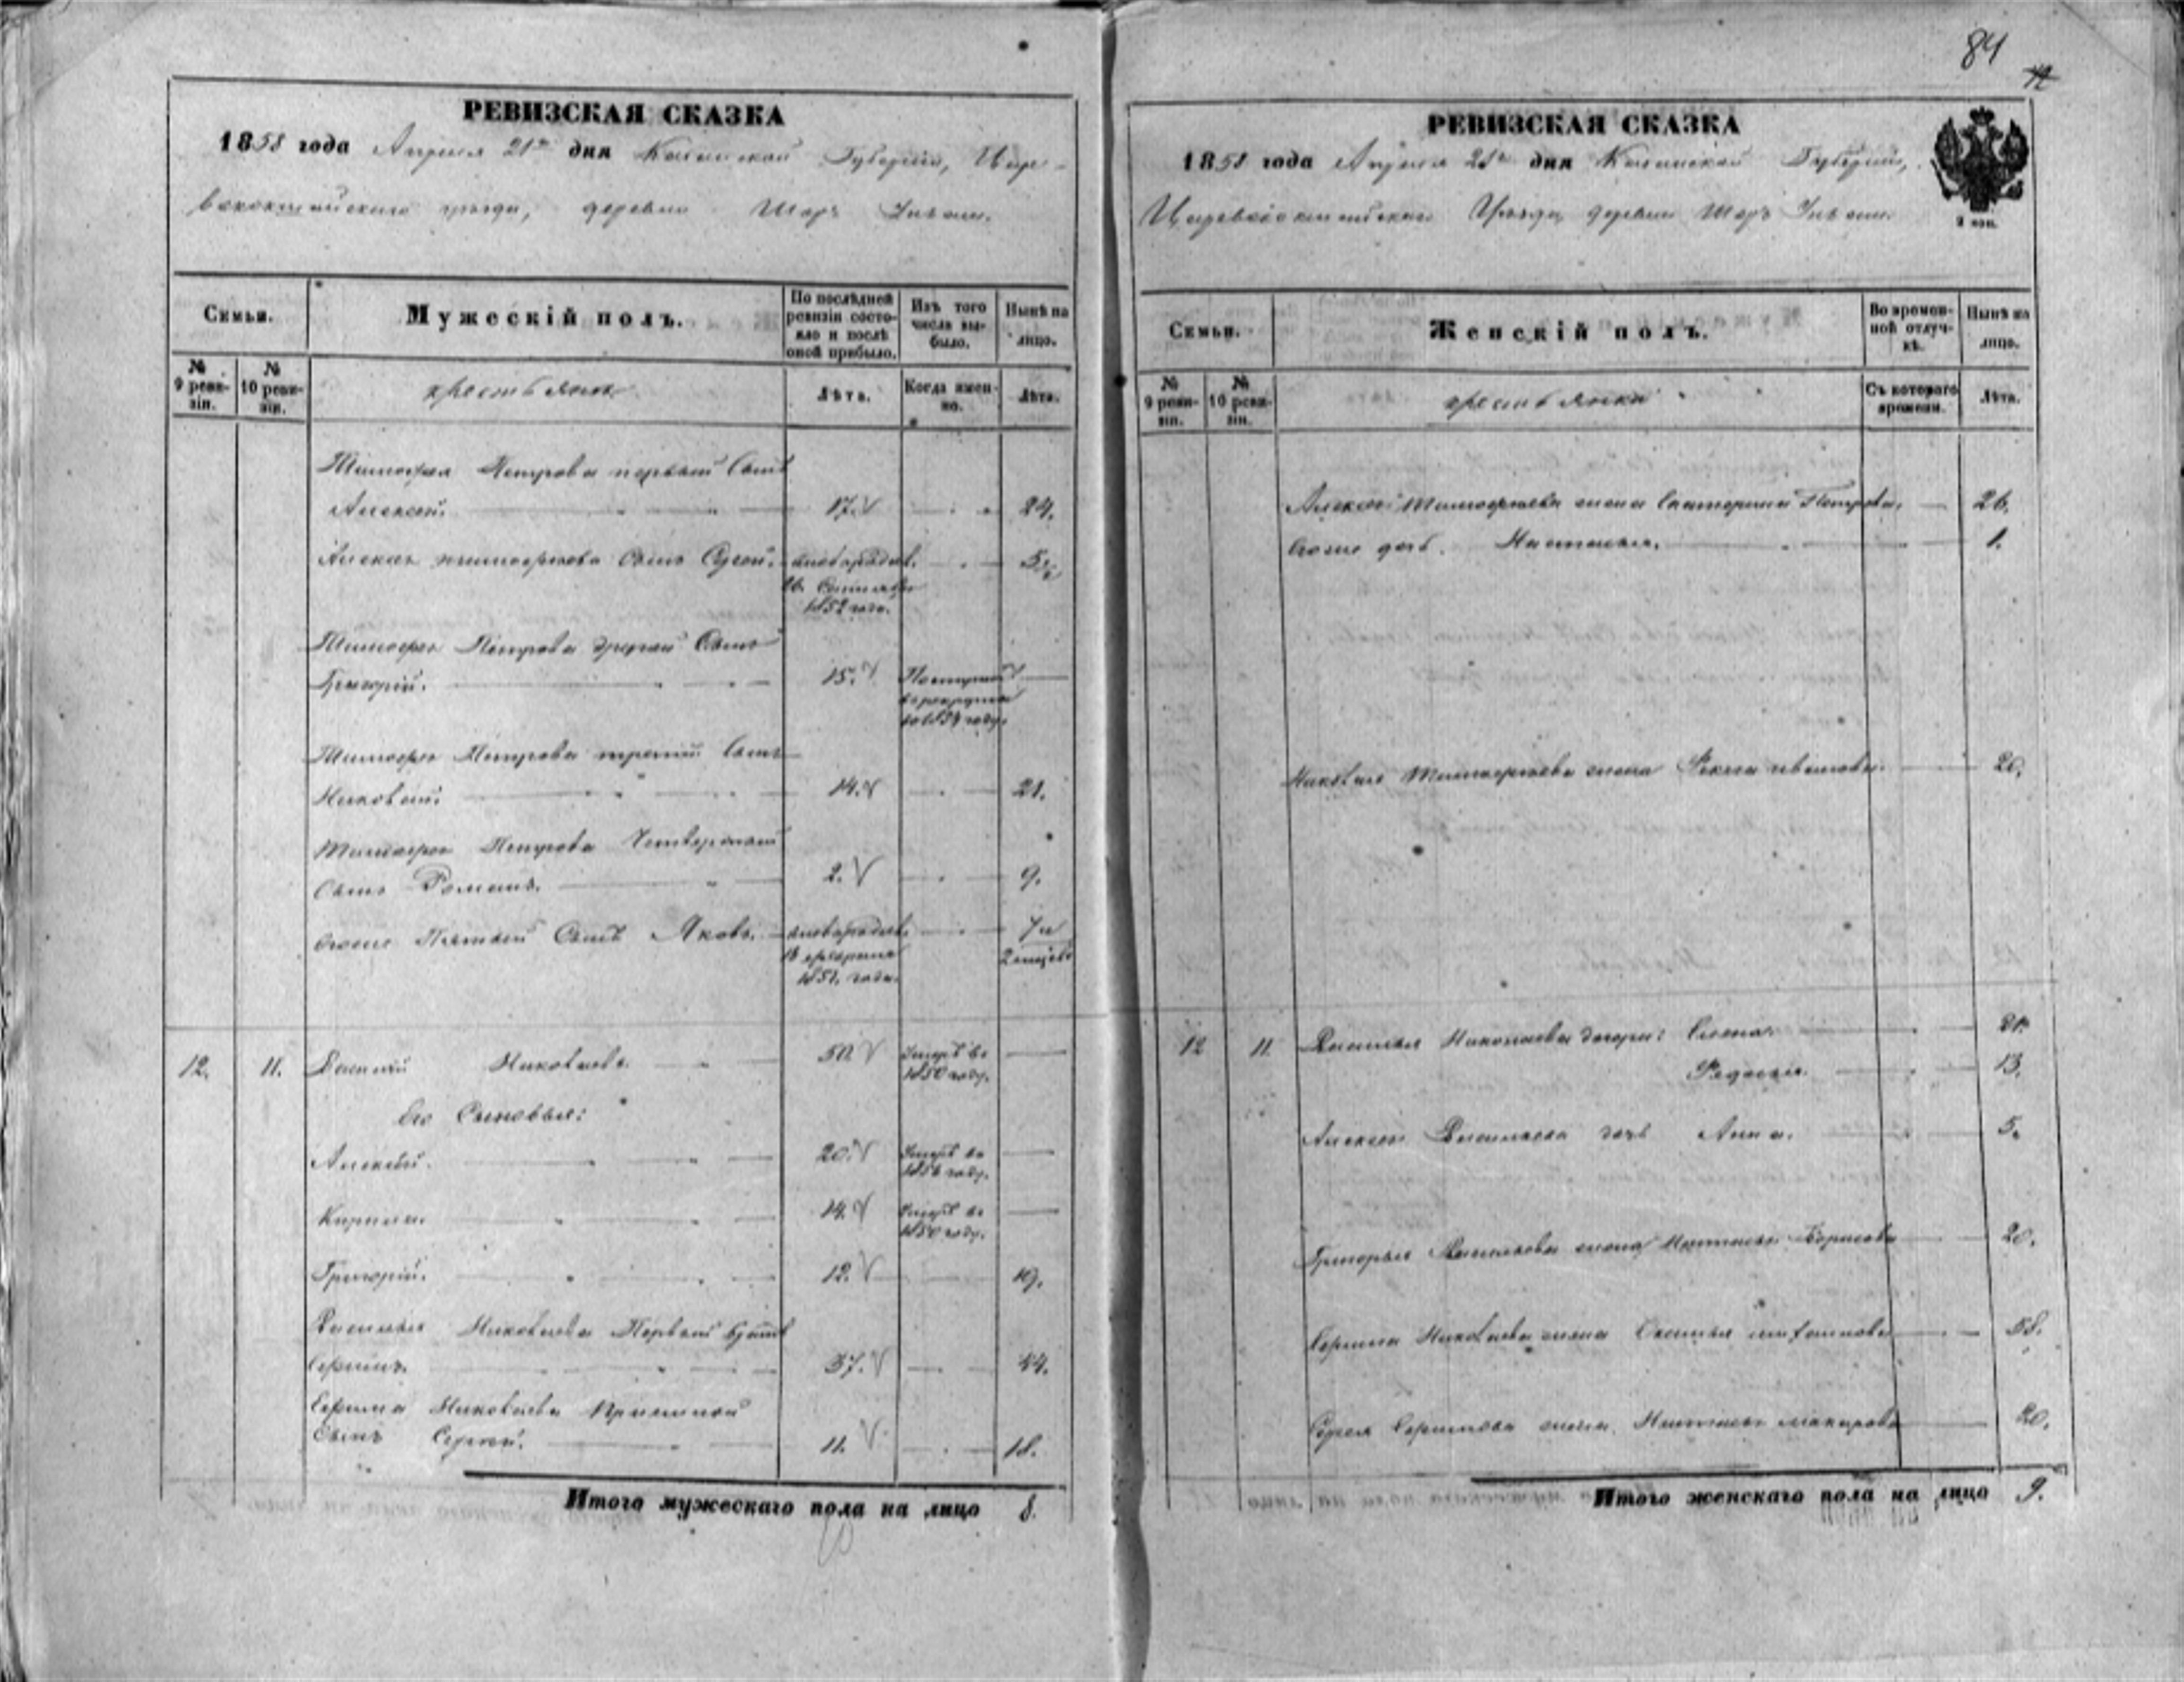 84
РЕВИЗСКАЯ СКАЗКА
1858 года Апреля 21го дня Казанской Губернии, Царе-
вококшайскаго уезда, деревни Шоръ
Семьи.
Мужескій полъ.
По послѣдней ревизіи состояло и послѣ оной прибыло.
Изъ того числа выбыло.
Нынѣ на лицо.
№ 9 ревизіи.
№ 10 ревизіи.
крестьяне
Лѣта.
Когда именно.
Лѣта.
Тимофея Петрова первый Сынъ
Алексей. 17. 24.
Алексея Тимофеева Сынъ Сергей. новорожд. 5
1852 года.
Тимофея Петрова другой Сынъ
Григорій. 15. Поступилъ
в рекруты
Тимофея Петрова третий Сынъ
Николай. 14. 21.
Тимофея Петрова Четвертый
Сынъ Романъ. 2. 9.
Егоже Пятый Сынъ Яковъ. новорожд. 7 и
в феврале 2 месяц.
1851. года.
12. 11. Василий Николаевъ. 50. Умеръ во
1850 году.
Его Сыновья:
Алексей. 20. Умеръ во
1856 году.
Кирила. 14. Умеръ во
1850 году.
Григорій. 12. 19.
Василья Николаева Первый братъ
Ефимъ. 37. 44.
Ефима Николаева
Сынъ Сергей. 11. 18.
Итого мужескаго пола на лицо 8.
РЕВИЗСКАЯ СКАЗКА
1858 года Апреля 21го дня Казанской Губернии,
Царевококшайскаго Уезда, деревни Шоръ
2 коп.
Семьи.
Женскій полъ.
Во временной отлучкѣ.
Нынѣ на лицо.
№ 9 ревизіи.
№ 10 ревизіи.
крестьянки
Съ котораго времени.
Лѣта.
Алексея Тимофеева жена Екатерина Петрова. 26.
Егоже дочь. Настасья. 1.
Николая Тимофеева жена Фекла 20.
12 11. Василья Николаева дочери: Елена. 21.
Федосья. 13.
Алексея Васильева дочь Анна. 5.
Григорья Васильева жена Настасья Борисова 20.
Ефима Николаева жена 58.
Сергея Ефимова жена Настасья Макарова 20.
Итого женскаго пола на лицо 9.